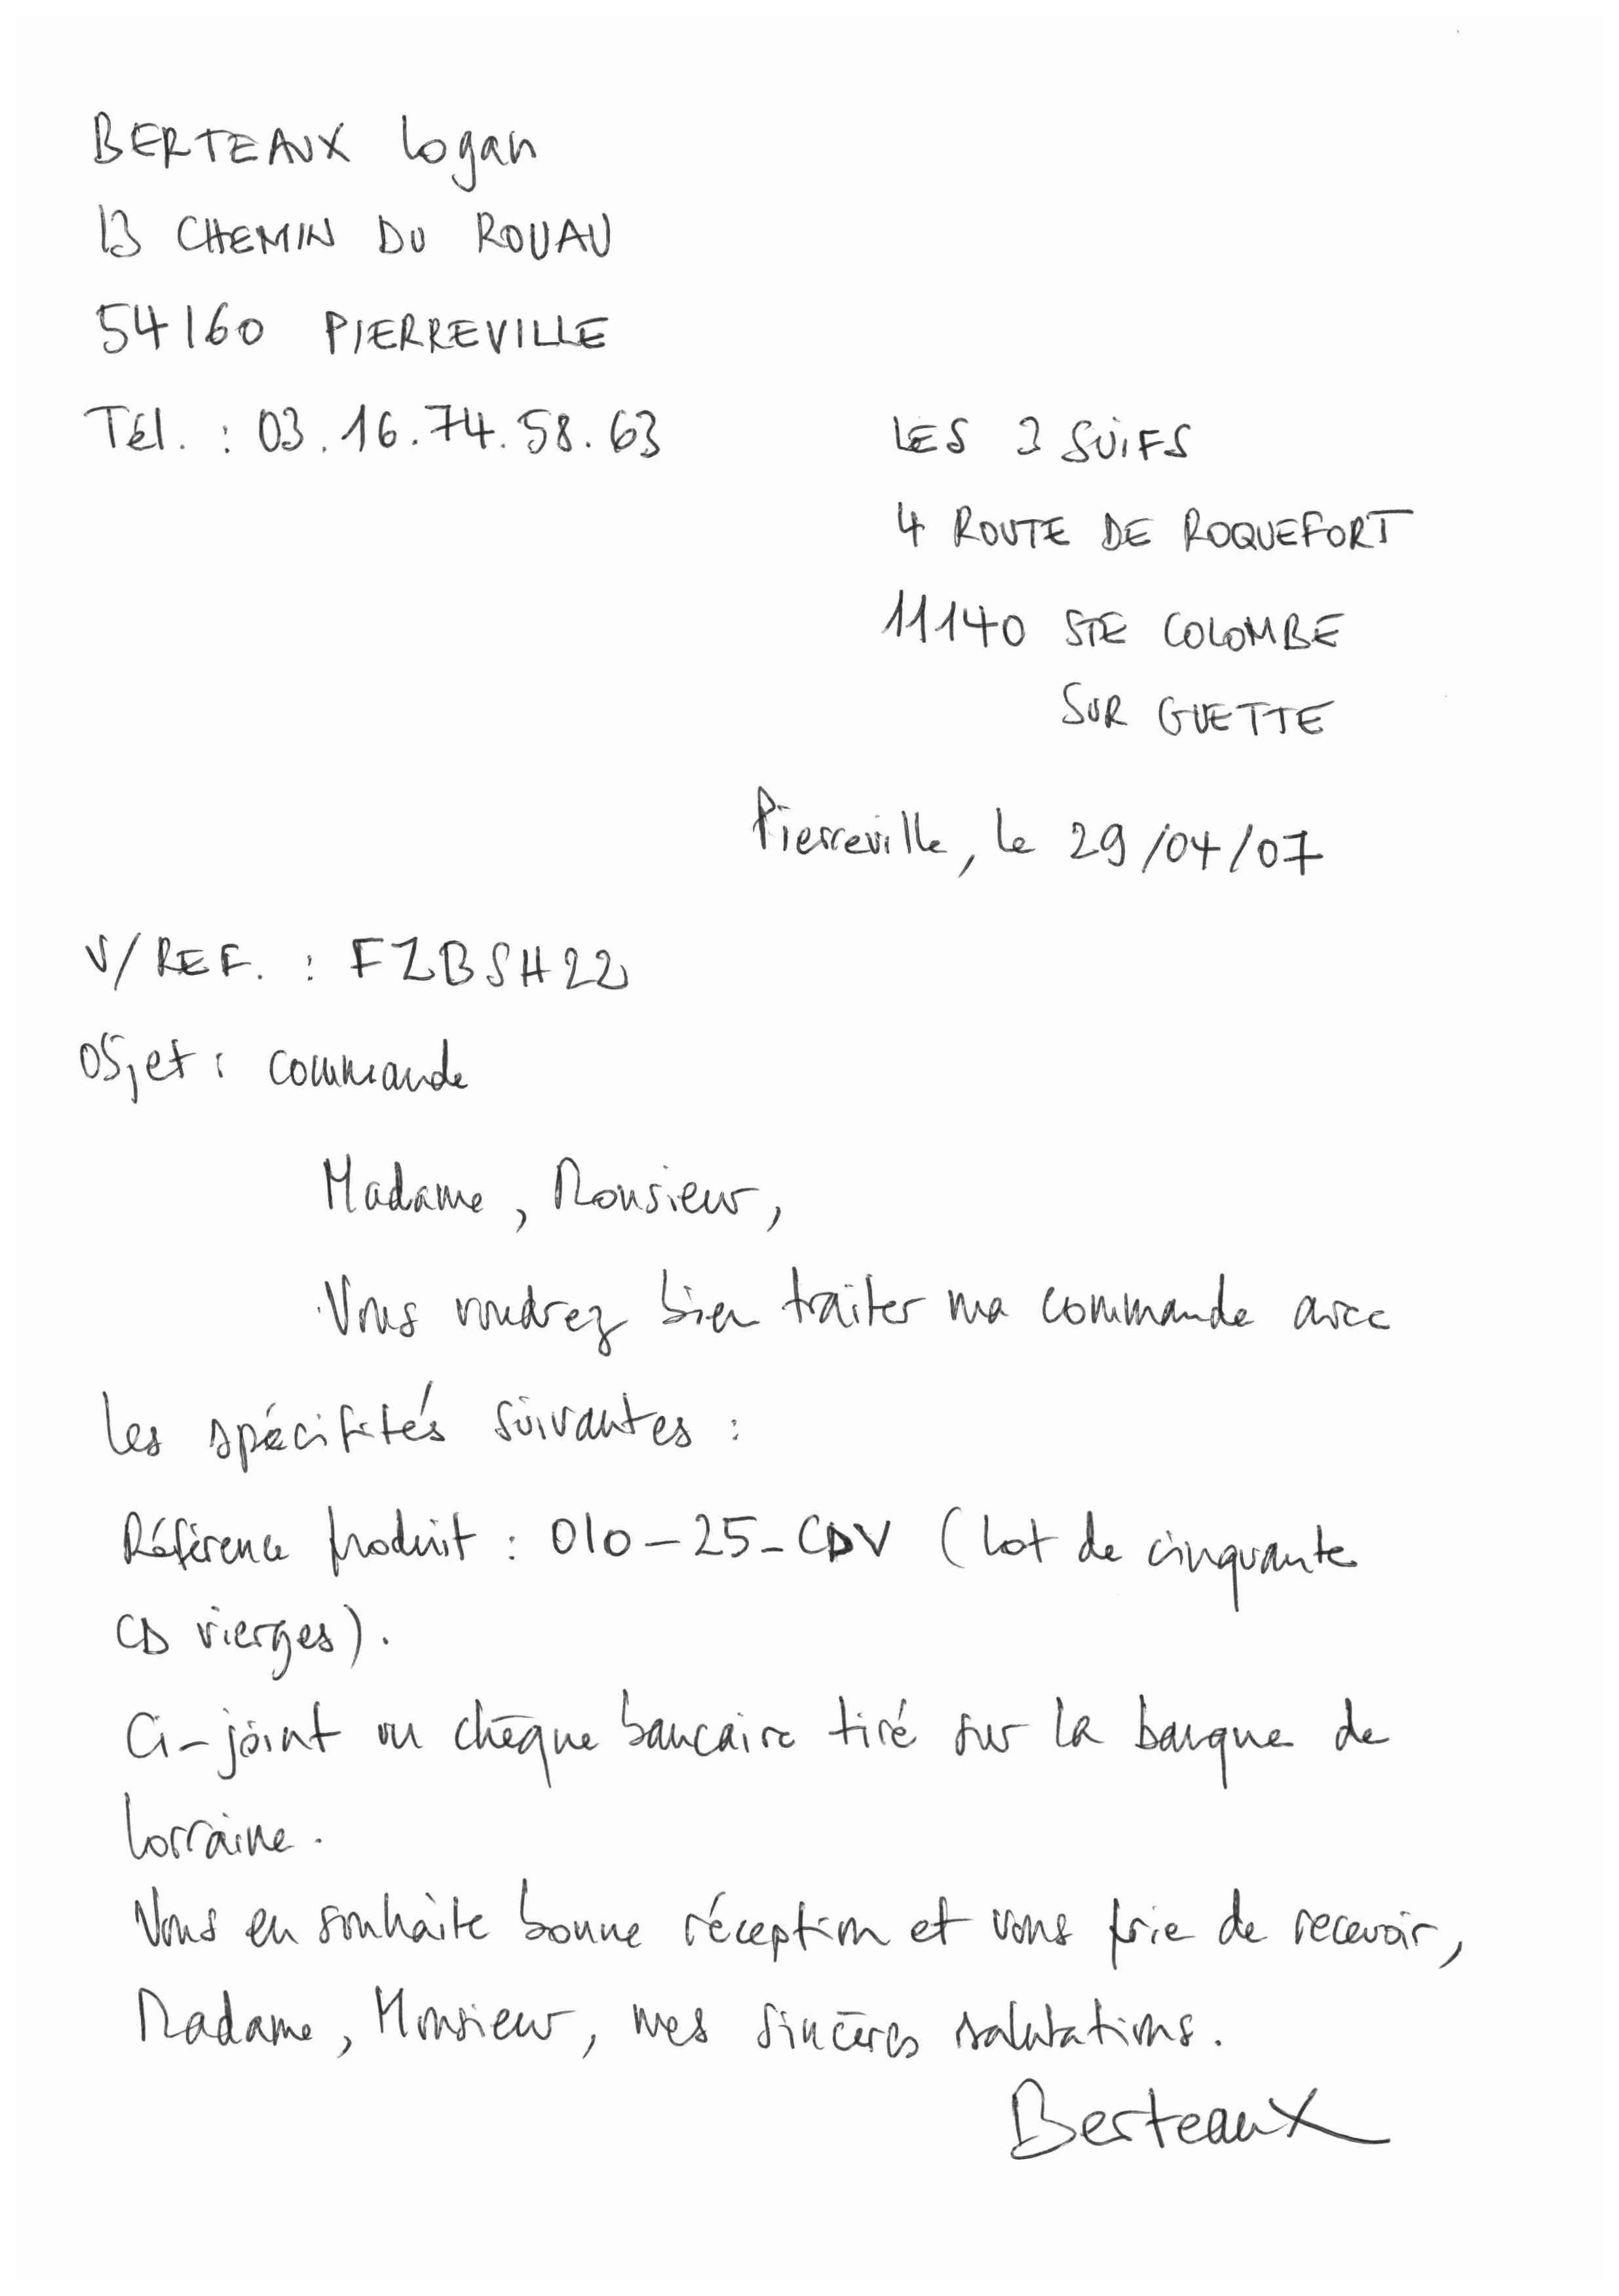 BERTEAUX Logan
13 CHEMIN DU ROUAU
54160 PIERREVILLE
Tél. : 03.16.74.58.63
LES 3 SUIFS
4 ROUTE DE ROQUEFORT
11140 STE COLOMBE
SUR GUETTE
Pierreville, le 29/04/07
V/REF. : FZBSH22
Objet : commande
Madame, Monsieur,
Vous voudrez bien traiter ma commande avec
les spécifités suivantes :
Référence produit : 010-25-CDV (lot de cinquante
CD vierges).
Ci-joint un chèque bancaire tiré sur la banque de
Lorraine.
Vous en souhaite bonne réception et vous prie de recevoir,
Madame, Monsieur, mes sincères salutations.
Berteaux